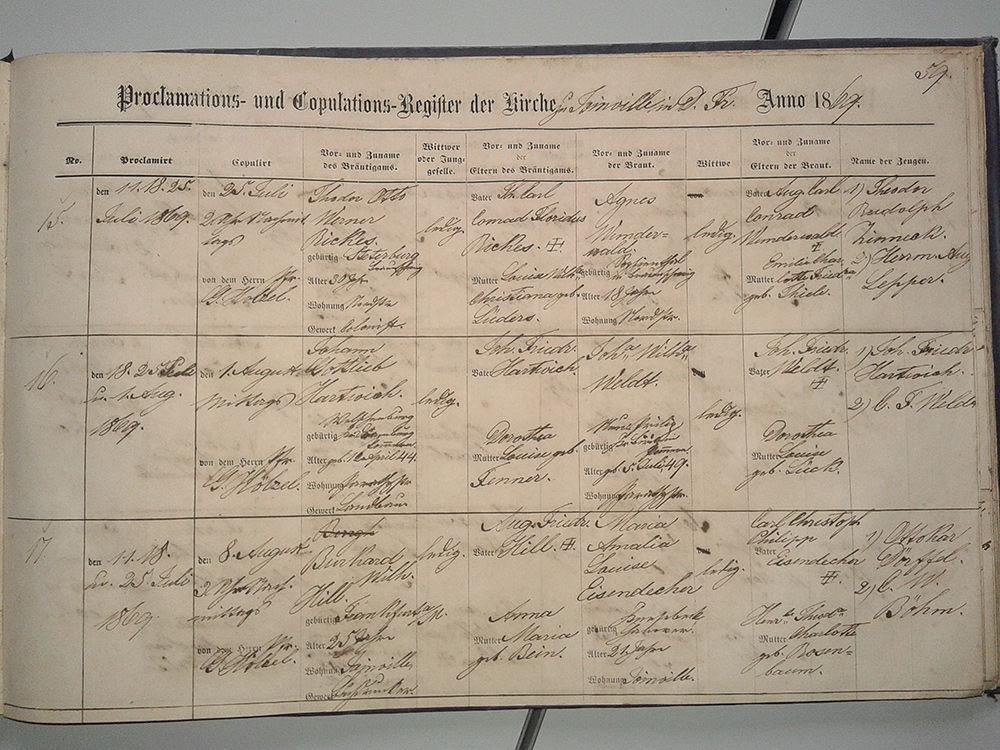 59.
Proclamations- und Copulations-Register der Kirche zu Joinville in D. Fr. Anno 1869.
No.
Proclamirt
Copulirt
Vor- und Zuname
des Bräutigams.
Wittwer
oder Jung-
geselle.
Vor- und Zuname
der
Eltern des Bräutigams.
Vor- und Zuname
der Braut.
Wittwe
Vor- und Zuname
der
Eltern der Braut.
Name der Zeugen.
15.
den 11. 18. 25.
Juli 1869.
den 25. Juli
2 Uhr
von dem Herrn Pfr.
G. Hölzel.
Theodor Otto
Werner
Rickes.
gebürtig Steterburg
Alter 30 Jhr
Wohnung Nordstr
Gewerk Colonist.
ledig.
Vater Th. Carl
Conrad Floridus
Rickes.
Mutter Louise Wilh.
Christiana geb.
Lüders.
Agnes
Wunder-
wald.
gebürtig
Alter 18 Jahr
Wohnung Nordstr.
ledig.
Vater Aug. Carl
Conrad
Wunderwald.
Emilie Char
Mutter lotte Fried
geb. Thiele.
1) Theodor
Rudolph
Zinneck.
2) Herrm. Aug
Lepper.
16.
den 18. 25 Juli
u. 1. Aug.
1869.
den 1. August
Mittags
von dem Herrn Pfr.
G. Hölzel.
Johann
Gottlieb
Hartwich.
gebürtig
Alter geb. 12 April 44.
Wohnung
Gewerk Landbau
ledig.
Joh. Friedr.
Vater Hartwich.
Dorothea
Mutter Louise geb.
Fenner.
Joha Wilha
Weldt.
gebürtig
Alter geb. 5. Juli 49.
Wohnung
ledig.
Joh. Friedr.
Vater Weldt.
Dorothea
Mutter Louise
geb. Lück.
1) Joh. Friedr.
Hartwich.
2) C. F. Weldt
17
den 11. 18.
u. 25. Juli
1869
den 8. August
3 Uhr Nach-
mittags
von dem Herrn Pfr.
G. Hölzel.
Burchard
Wilh.
Hill.
gebürtig Frankfurt a/M.
Alter 25 Jahr
Wohnung Joinville
Gewerk
ledig.
Aug. Friedr.
Vater Hill.
Anna
Mutter Maria
geb. Bein.
Maria
Amalia
Louise
Eisendecher
gebürtig
Hannover.
Alter 21 Jahr
Wohnung Joinville.
ledig.
Carl Christoph
Philipp
Vater
Eisendecher
Henr. Theod.
Mutter Charlotte
geb. Rosen-
baum.
1) Ottokar
Dörffel.
2) C. W.
Böhm.